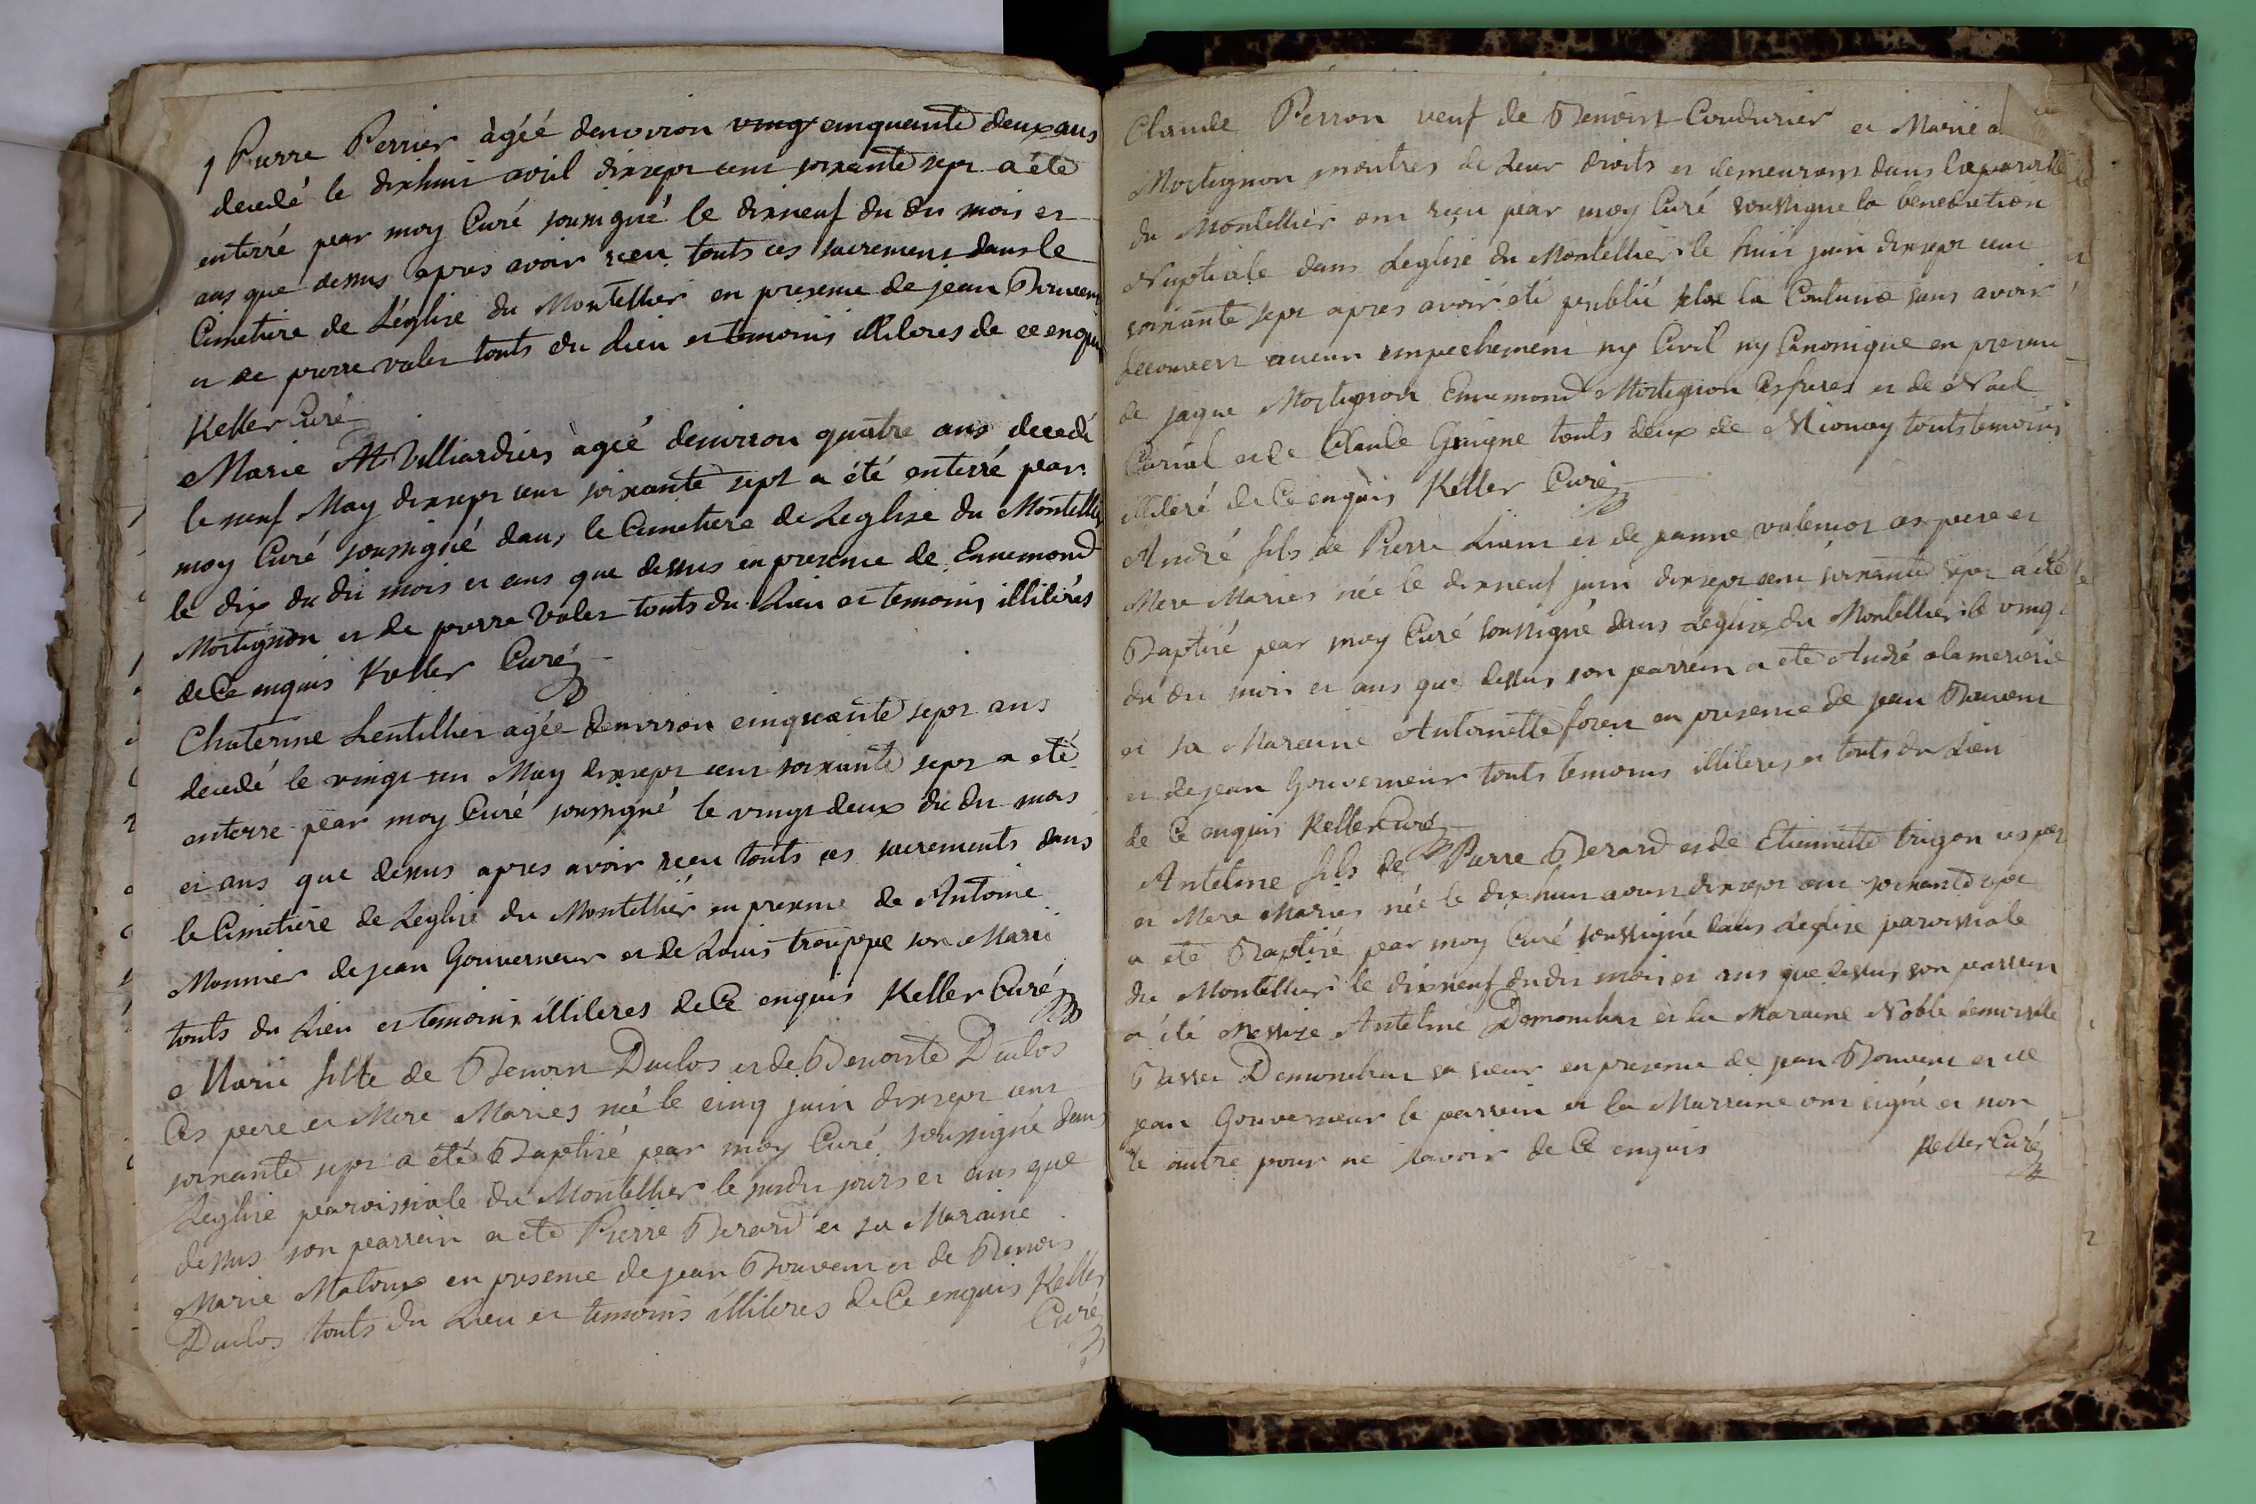 Pierre Perrier àgéé denviron vingt cinquante deux ans
decedé le dixhuit avril dixsept cent soixante sept a été
enterré par moy Curé soussigné le dixneuf du dit mois et
ans que dessus apres avoir reçu touts ces sacrement dans le
Cimetiere de Léglise du Montellier en presence de jean Bouvent
et de pierre valet touts du Lieu et temoins illiteres de ce enquis
Keller Curé
Marie Villiardiers àgéé denviron quatre ans decedé
le neuf May dixsept cent soixante sept a été enterré par
moy Curé soussigné dans le Cimetiere de Leglise du Montellier
le dix du dit mois et ans que dessus en presence de Ennemond
Mortignon et de pierre Valet touts du Lieu et temoins illitérés
de Ce enquis Keller Curé
Chaterine Lentillier agée denviron cinquante sept ans
decedé le vingt un May dixsept cent soixante sept a eté
enterre par moy Curé soussigné le vingt deux du dit mois
et ans que dessus apres avoir reçu touts ces sacrements dans
le Cimetiere de Leglise du Montellier en presence de Antoine
Monnier de jean Gouverneur et de Louis trouppe son Mari
touts du Lieu et temoins illiteres de Ce enquis Keller Curé
Marie fille de Benoit Duclos et de Benoite Duclos
Ces pere et Mere Mariés née le cinq juin dixsept cent
soixante sept a été Baptisé par moy Curé soussigné dans
Leglise paroissiale du Montellier le susdit jours et ans que
dessus son parrein a eté Pierre Berard et sa Maraine
Marie en presence de jean Bouvent et de Benoit
Duclos touts du Lieu et temoins illiteres de Ce enquis Keller
Curé
Claude Perron veuf de Benoist Coudurier et Marie
Mortignon moitres de Leur droits et demeurans dans la paroisse
du Montellier ont reçu par moy Curé soussigne la benediction
Nuptiale dans Leglise du Montellier le huit juin dixsept cent
soixante sept apres avoir été publié selon la Coutume sans avoir
decouvert aucun empechement ny Civil ny Canonique en presence
de jaque Mortignon Ennemond Mortignon Ces freres et de Noel
Curial et de Claude Guigne touts deux de Mionay touts temoins
illiteré de Ce enquis Keller Curé
André fils de Pierre et de janne ces pere et
Mere Mariés née le dixneuf juin dixsept cent soixante sept a été
Baptisé par moy Curé soussigné dans Leglise du Montellier le vingt
du dit mois et ans que dessus son parrein a eté André
et sa Maraine Antoinette en presence de jean Bouvent
et de jean Gouverneur touts temoins illiteres et touts du Lieu
de Ce enquis Keller Curé
Antelme fils de Pierre Berard et de Etiennette trigon ces pere
et Mere Mariés née le dixhuit dixsept cent soixante sept
a eté Baptisé par moy Curé soussigné dans Leglise paroissiale
du Montellier le dixneuf du dit mois et ans que dessus son parrein
a été Messire Antelme Demonchar et la Maraine Noble demoiselle
Demonchar sa sœur en presence de jean Bouvent et de
jean Gouverneur le parrein et la Marraine ont signé et non
le autre pour ne savoir de Ce enquis Keller Curé